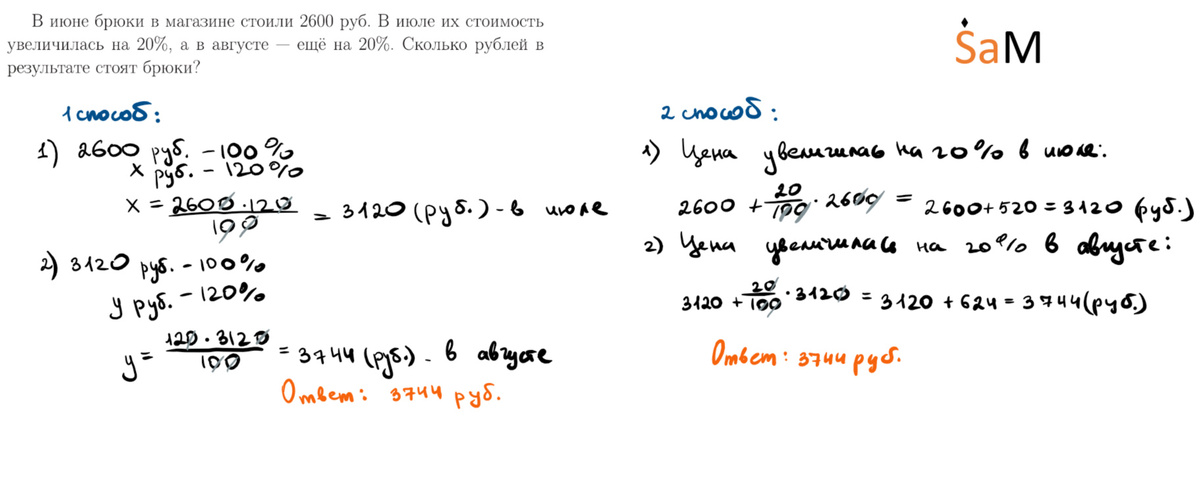 В июне брюки в магазине стоили 2600 руб. В июле их стоимость
увеличилась на 20%, а в августе — ещё на 20%. Сколько рублей в
результате стоят брюки?
SaM
1 способ:
1) 2600 руб. - 100%
x руб. - 120%
x = 2600 · 120 / 100 = 3120 (руб.) - в июле
2) 3120 руб. - 100%
y руб. - 120%
y = 120 · 3120 / 100 = 3744 (руб.) - в августе
Ответ: 3744 руб.
2 способ:
1) Цена увеличилась на 20% в июле:
2600 + 20/100 · 2600 = 2600 + 520 = 3120 (руб.)
2) Цена увеличилась на 20% в августе:
3120 + 20/100 · 3120 = 3120 + 624 = 3744 (руб.)
Ответ: 3744 руб.